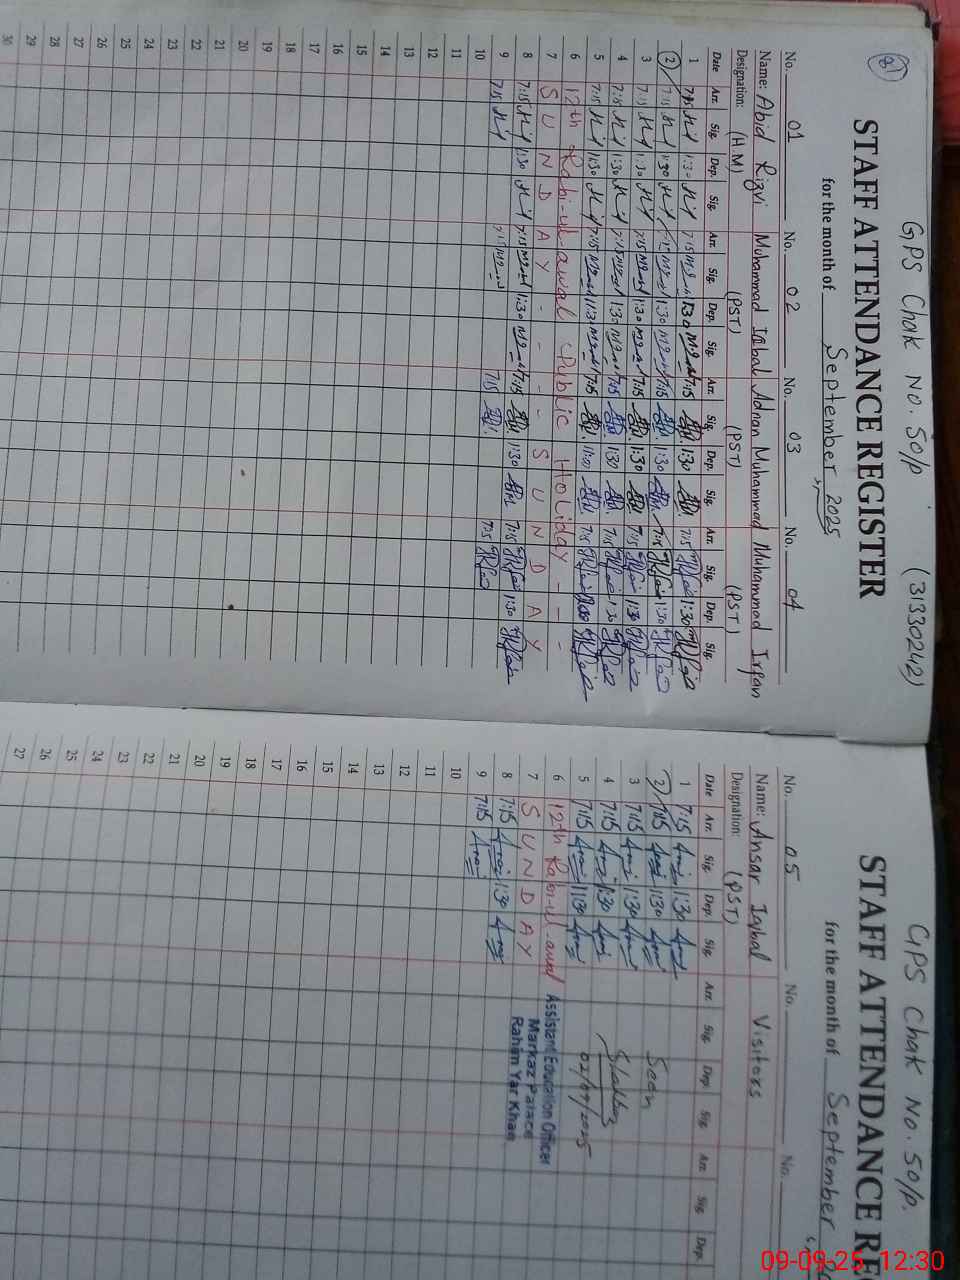 81
GPS Chak No. 50/P (31330242)
STAFF ATTENDANCE REGISTER
for the month of September 2025
No. 01 No. 02 No. 03 No. 04
Name: Abid Rizvi Muhammad Iqbal Adnan Muhammad Muhammad Irfan
Designation: (H.M) (PST) (PST) (PST)
Date Arr. Sig. Dep. Sig. Arr. Sig. Dep. Sig. Arr. Sig. Dep. Sig. Arr. Sig. Dep. Sig.
1 7:15 1:30 7:15 1:30 7:15 1:30 7:15 1:30
2 7:15 1:30 7:15 1:30 7:15 1:30 7:15 1:30
3 7:15 1:30 7:15 1:30 7:15 1:30 7:15 1:30
4 7:15 1:30 7:15 1:30 7:15 1:30 7:15 1:30
5 7:15 11:30 7:15 11:30 7:15 11:00 7:15
6 12th Rabi-ul-awal Public Holiday - - -
7 S U N D A Y - - - - S U N D A Y
8 7:15 1:30 7:15 1:30 7:15 1:30 7:15 1:30
9 7:15 7:15 7:15 7:15
10
11
12
13
14
15
16
17
18
19
20
21
22
23
24
25
26
27
28
29
30
GPS Chak No. 50/P.
STAFF ATTENDANCE RE
for the month of September
No. 05 No. No.
Name: Ansar Iqbal Visitors
Designation: (PST)
Date Arr. Sig. Dep. Sig. Arr. Sig. Dep. Sig. Arr. Sig. Dep.
1 7:15 1:30
2 7:15 1:30 Seen
3 7:15 1:30
4 7:15 1:30
5 7:15 11:30 02/09/2025
6 12th Rabi-ul-awal
7 S U N D A Y
8 7:15 1:30
9 7:15
Assistant Education Officer
Markaz Palace
Rahim Yar Khan
10
11
12
13
14
15
16
17
18
19
20
21
22
23
24
25
26
27
09-09-25 12:30